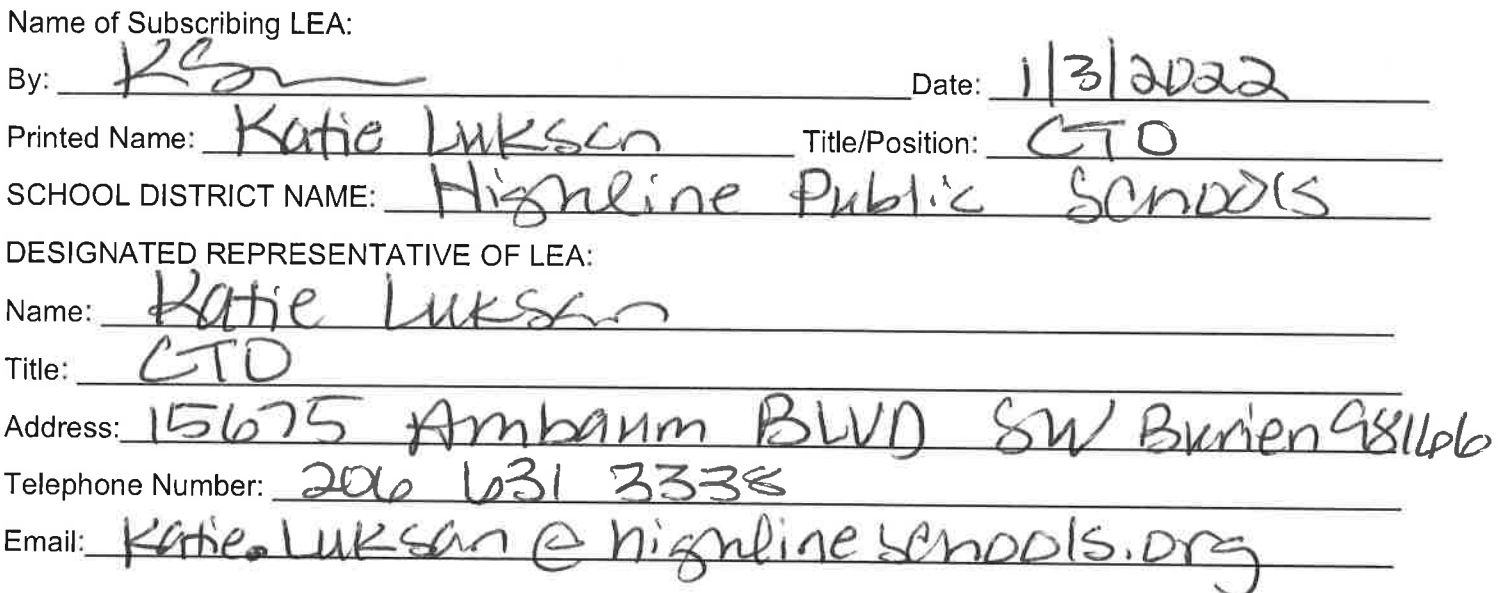 Name of Subscribing LEA:
By: Date: 1/3/2022
Printed Name: Katie Luksan Title/Position: CTO
SCHOOL DISTRICT NAME: Highline Public Schools
DESIGNATED REPRESENTATIVE OF LEA:
Name: Katie Luksan
Title: CTO
Address: 15675 Ambaum BLVD SW Burien 98166
Telephone Number: 206 631 3338
Email: Katie.Luksan@highlineschools.org